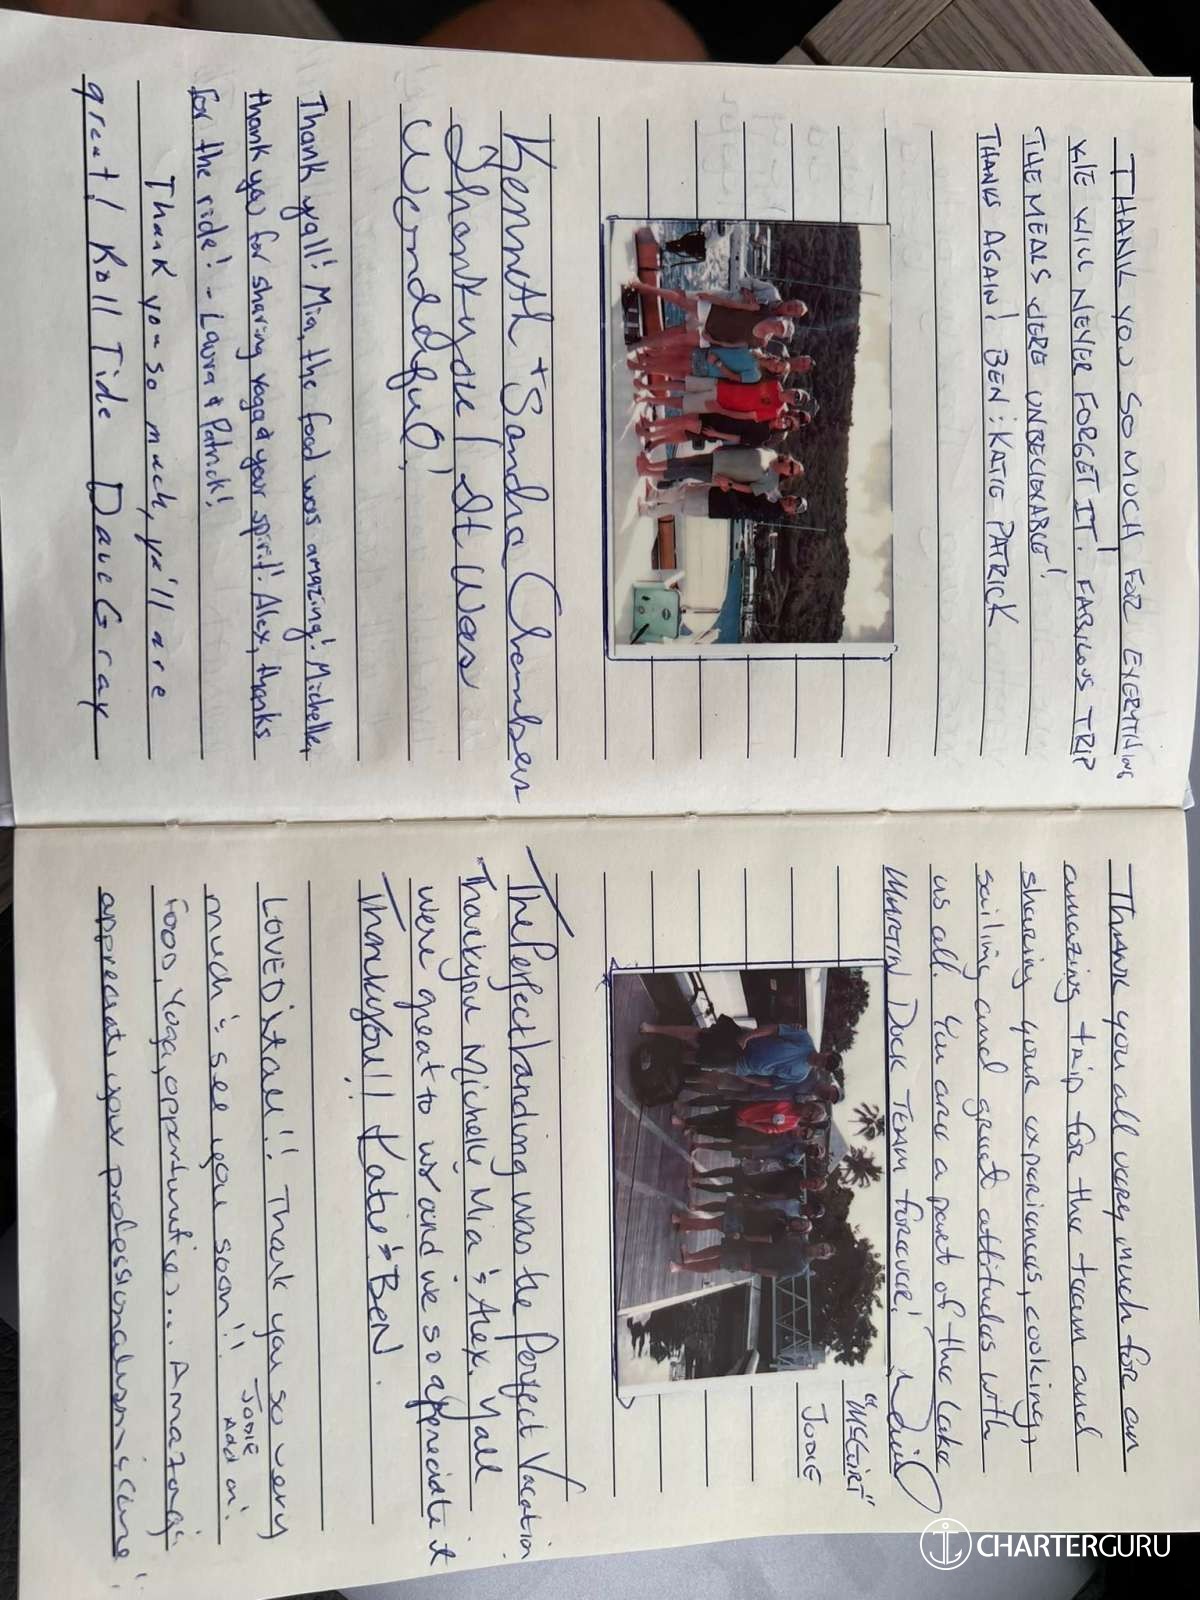 THANK YOU SO MUCH FOR EVERYTHING
WE WILL NEVER FORGET IT! FABULOUS TRIP
THE MEALS WERE UNBELIEVABLE!
THANKS AGAIN! BEN & KATIE PATRICK
Kenneth + Sandra Chambers
Thank you! It Was
Wonderful!
Thank yall! Mia, the food was amazing! Michelle,
thank you for sharing yoga & your spirit! Alex, thanks
for the ride! - Laura & Patrick!
Thank you so much, ya'll are
great! Roll Tide Dave Gray
Thank you all very much for an
amazing trip for the team and
sharing your experiences, cooking,
sailing and great attitudes with
us all. You are a part of the Lake
Martin Dock Team forever!
"McGirt"
JODIE
The Perfect landing was the Perfect Vacation
Thankyou Michelle Mia & Alex. Yall
were great to us and we so apreciate it
Thankyou!! Katie & BEN.
LOVED it all!! Thank you so very
much & see you soon!! JODIE
Add on:
Food, Yoga, opportunities... Amazing &
appreciate your professionalism & care!
CHARTERGURU